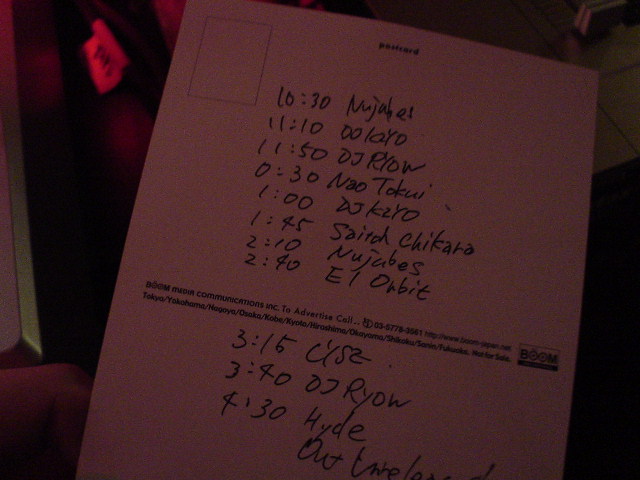 postcard
10:30 Nujabes
11:10 DJ KIYO
11:50 DJ RYOW
0:30 Nao Tokui
1:00 DJ KIYO
1:45 Chikara
2:10 Nujabes
2:40 El Orbit
BOOM MEDIA COMMUNICATIONS INC. To Advertise Call... 03-5778-3561 http://www.boom-japan.net
Tokyo/Yokohama/Nagoya/Osaka/Kobe/Kyoto/Hiroshima/Okayama/Shikoku/Sanin/Fukuoka. Not for Sale.
BOOM
3:15
3:40 DJ Ryow
4:30 Hyde
Out